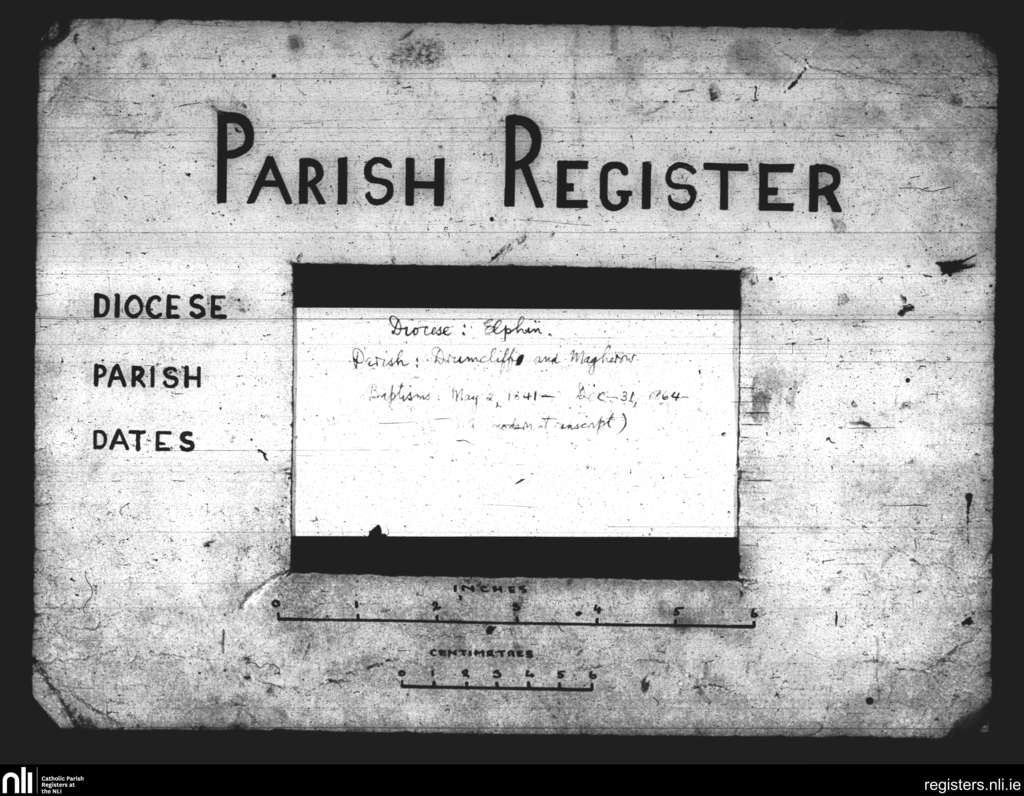 PARISH REGISTER
DIOCESE
PARISH
DATES
Diocese: Elphin.
Parish: Drumcliffe and Magherow
Baptisms: May 2, 1841 — Dec 31, 1864
modern transcript)
INCHES
0 1 2 3 4 5 6
CENTIMETRES
0 1 2 3 4 5 6
nli
Catholic Parish
Registers at
the NLI
registers.nli.ie